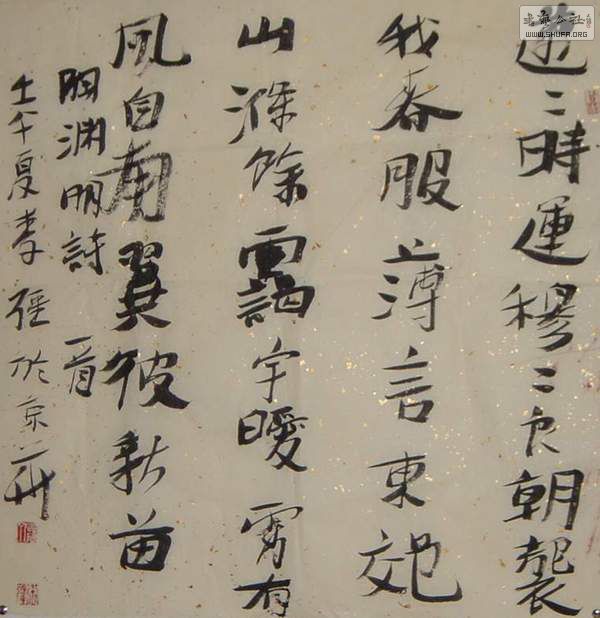 邁〻時運穆〻良朝襲
我春服薄言東郊
山滌餘靄宇曖霄有
風自南翼彼新苗
陶淵明詩一首
壬午夏李強於京華
書藝公社
WWW.SHUFA.ORG